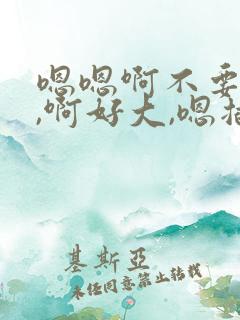 嗯嗯啊不要
,啊好大,嗯
基斯亞
未经同意禁止转载